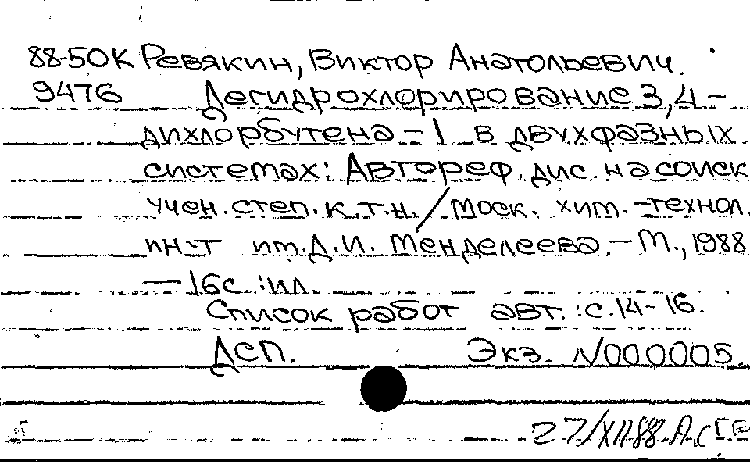 88-50К Ревякин, Виктор Анатольевич.
9476 Дегидрохлорирование 3,4-
дихлорбутена-1 в двухфазных
системах: Автореф. дис. на соиск
учен. степ. к.т.н. / Моск. хим.-технол.
ин-т им. Д.И. Менделеева. - М., 1988
— 16с. : ил.
Список работ авт. : с. 14-16.
ДСП. Экз. N000005.
27/XII88.